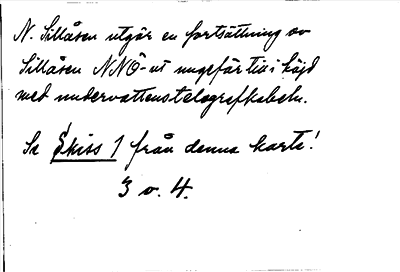 N. Sillåsen utgör en fortsättning av
Sillåsen NNÖ-ut ungefär till i höjd
med undervattenstelegrafkabeln.
Se Skiss 1 från denna karta!
3 o. 4.